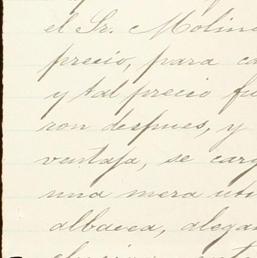 el Sr. Molin
precio, para ca
y tal precio fu
ron despues, y
ventaja, se carg
una mera uti
albacea, alega